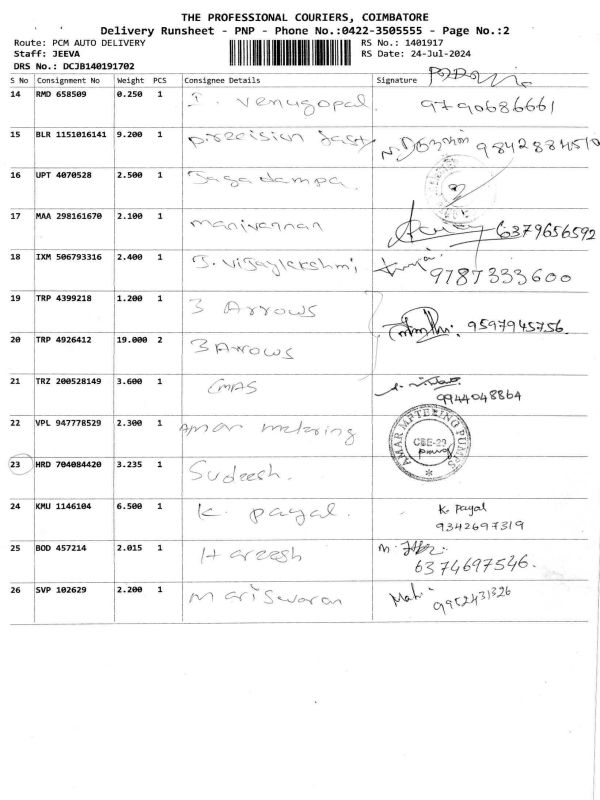 THE PROFESSIONAL COURIERS, COIMBATORE
Delivery Runsheet - PNP - Phone No.:0422-3505555 - Page No.:2
Route: PCM AUTO DELIVERY RS No.: 1401917
Staff: JEEVA RS Date: 24-Jul-2024
DRS No.: DCJB140191702
S No Consignment No Weight PCS Consignee Details Signature
14 RMD 658509 0.250 1 I. venugopal. 9790686661
15 BLR 1151016141 9.200 1 precision 9842884510
16 UPT 4070528 2.500 1 Jagadampa.
17 MAA 298161670 2.100 1 manivannan 6379656592
18 IXM 506793316 2.400 1 J. vijaylekshmi 9787333600
19 TRP 4399218 1.200 1 3 Arrows
20 TRP 4926412 19.000 2 3 Arrows 9597945756
21 TRZ 200528149 3.600 1 CMAS 9944048864
22 VPL 947778529 2.300 1 Amar metering AMAR METERING PUMPS CBE-23
23 HRD 704084420 3.235 1 Sudeesh.
24 KMU 1146104 6.500 1 K. payal. K. Payal
9342697319
25 BOD 457214 2.015 1 Hareesh 6374697546.
26 SVP 102629 2.200 1 mariswaran 9952431326